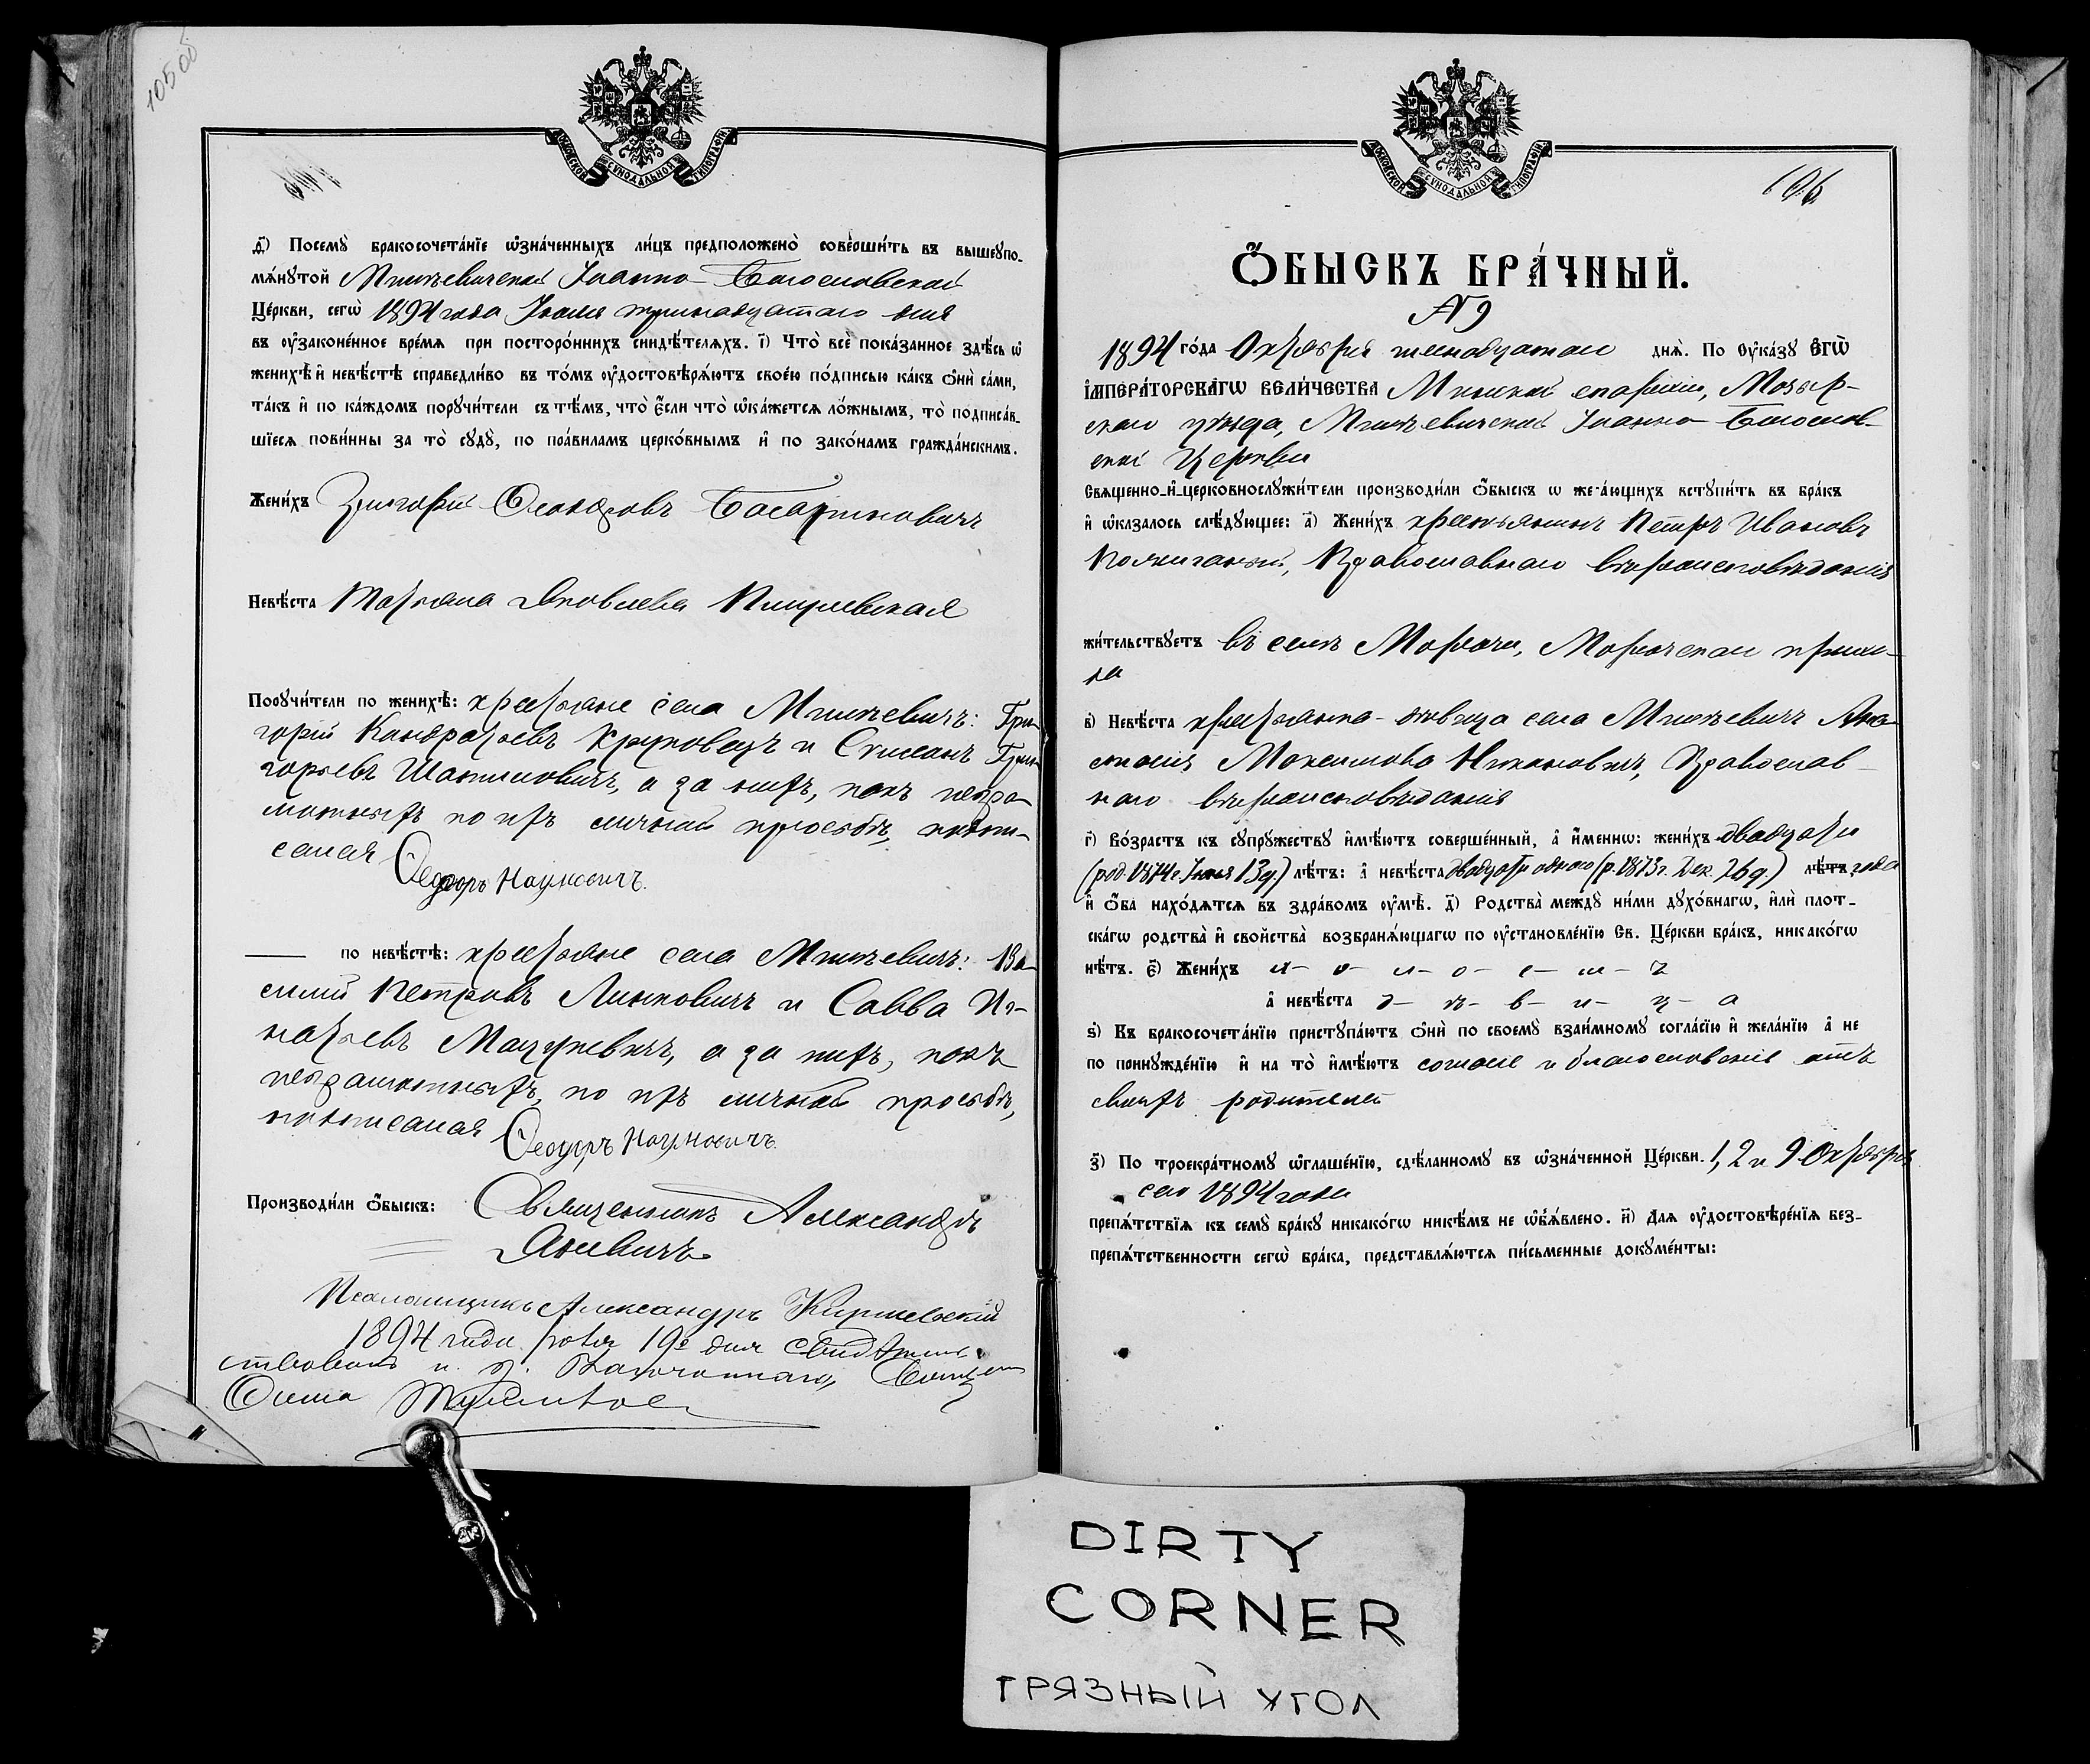 105об
МОСКОВСКОЙ СѴНОДАЛЬНОЙ ТИПОГРАФІИ
д҃) Посемꙋ̀ бракосочета́нїе ѡ҆зна́ченныхъ ли́цъ предположено̀ соверши́ть въ вышеꙋпо-
мѧ́нꙋтой Мышевичской Іоанно-Богословской
Це́ркви, сегѡ̀ 1894 года Іюля тринадцатаго дня
въ ᲂу҆законе́нное вре́мѧ при посторо́ннихъ свидѣ́телѧхъ. і҃) Что̀ всѐ пока́занное здѣ́сь ѡ҆
женихѣ̀ и҆ невѣ́стѣ справедли́во въ то́мъ ᲂу҆достовѣрѧ́ютъ свое́ю по́дписью ка́къ ѻ҆нѝ са́ми,
та́къ и҆ по ка́ждомъ порꙋчи́тели съ тѣ́мъ, что̀ є҆́сли что̀ ѡ҆ка́жетсѧ ло́жнымъ, то̀ подписа́в-
шїесѧ пови́нны за то̀ сꙋдꙋ̀, по пра́виламъ церко́внымъ и҆ по зако́намъ гражда́нскимъ.
Жени́хъ Григорій
Невѣ́ста Татьяна Яковлева
Порꙋчи́тели по женихѣ̀: крестьяне села Мышевичъ: Гри-
горій Кондратьевъ Круковецъ и Стефанъ Гри-
горьевъ, а за нихъ, какъ негра-
мотныхъ по ихъ личной просьбѣ, подпи-
сался Ѳедоръ Наумовичъ.
по невѣ́стѣ: крестьяне села Мышевичъ: Ва-
силій Петровъ Линковичъ и Савва Иг-
натьевъ Мацукевичъ, а за нихъ, какъ
неграмотныхъ, по ихъ личной просьбѣ,
подписался Ѳедоръ Наумовичъ.
Производи́ли ѻ҆́быскъ: Священникъ Александръ
Яневичъ
Псаломщикъ Александръ
1894 года 19го дня свидѣтель-
ствовалъ
МОСКОВСКОЙ СѴНОДАЛЬНОЙ ТИПОГРАФІИ
106
Ѻ҆́БЫСКЪ БРА́ЧНЫЙ.
№ 9
1894 го́да Октября шестнадцатаго днѧ̀. По ᲂу҆ка́зꙋ Є҆гѡ̀
І҆мпера́торскагѡ Вели́чества Минской епархіи, Мозыр-
скаго уѣзда, Мышевичской Іоанно-Богослов-
ской Церкви
Свѧще́нно-и҆-церковнослꙋжи́тели производи́ли ѻ҆́быскъ ѡ жела́ющихъ встꙋпи́ть въ бра́къ
и҆ ѡ҆казалось слѣ́дꙋющее: а҃) Жени́хъ крестьянинъ Петръ Ивановъ
Православнаго вѣроисповѣданія
жи́тельствꙋетъ въ селѣ Морочи, Морочскаго прихо-
да
в҃) Невѣ́ста крестьянка-дѣвица села Мышевичъ Ана-
стасія Максимова Никановичъ, Православ-
наго вѣроисповѣданія
г҃) Во́зрастъ къ сꙋпрꙋ́жествꙋ и҆мѣ́ютъ соверше́нный, а҆ и҆́меннѡ: жени́хъ двадцати
(род. 1874 г. Іюня 13 д.) лѣ́тъ: а҆ невѣ́ста двадцати одного (р. 1873 г. Дек. 26 д.) лѣ́тъ года
и҆ ѻ҆́ба нахо́дѧтсѧ въ здра́вомъ ᲂу҆мѣ̀. д҃) Родства̀ междꙋ̀ ни́ми дꙋхо́внагѡ, и҆лѝ плот-
ска́гѡ родства̀ и҆ сво́йства̀ возбранѧ́ющагѡ по ᲂу҆становле́нїю Св. Це́ркви бра́къ, никако́гѡ
нѣ́тъ. є҃) Жени́хъ х- о- л- о- с- т- ъ
а҆ невѣ́ста д- ѣ- в- и- ц- а
ѕ҃) Къ бракосочета́нїю пристꙋпа́ютъ ѻ҆нѝ по своемꙋ̀ взаи́мномꙋ согла́сїю и҆ жела́нїю а҆ не
по принꙋжде́нїю и҆ на то̀ и҆мѣ́ютъ согласіе и благословеніе отъ
своихъ родителей
з҃) По троекра́тномꙋ ѡ҆глаше́нїю, сдѣ́ланномꙋ въ ѡ҆зна́ченной Це́ркви. 1, 2 и 9 Октября
сего 1894 года
препѧ́тствїѧ къ семꙋ̀ бра́кꙋ никако́гѡ никѣ́мъ не ѡ҆б̾ѧ́влено. и҃) Длѧ ᲂу҆достовѣре́нїѧ без-
препѧ́тственности сегѡ̀ бра́ка, представлѧ́ютсѧ пи́сьменные докꙋме́нты:
DIRTY
CORNER
ГРЯЗНЫЙ УГОЛ